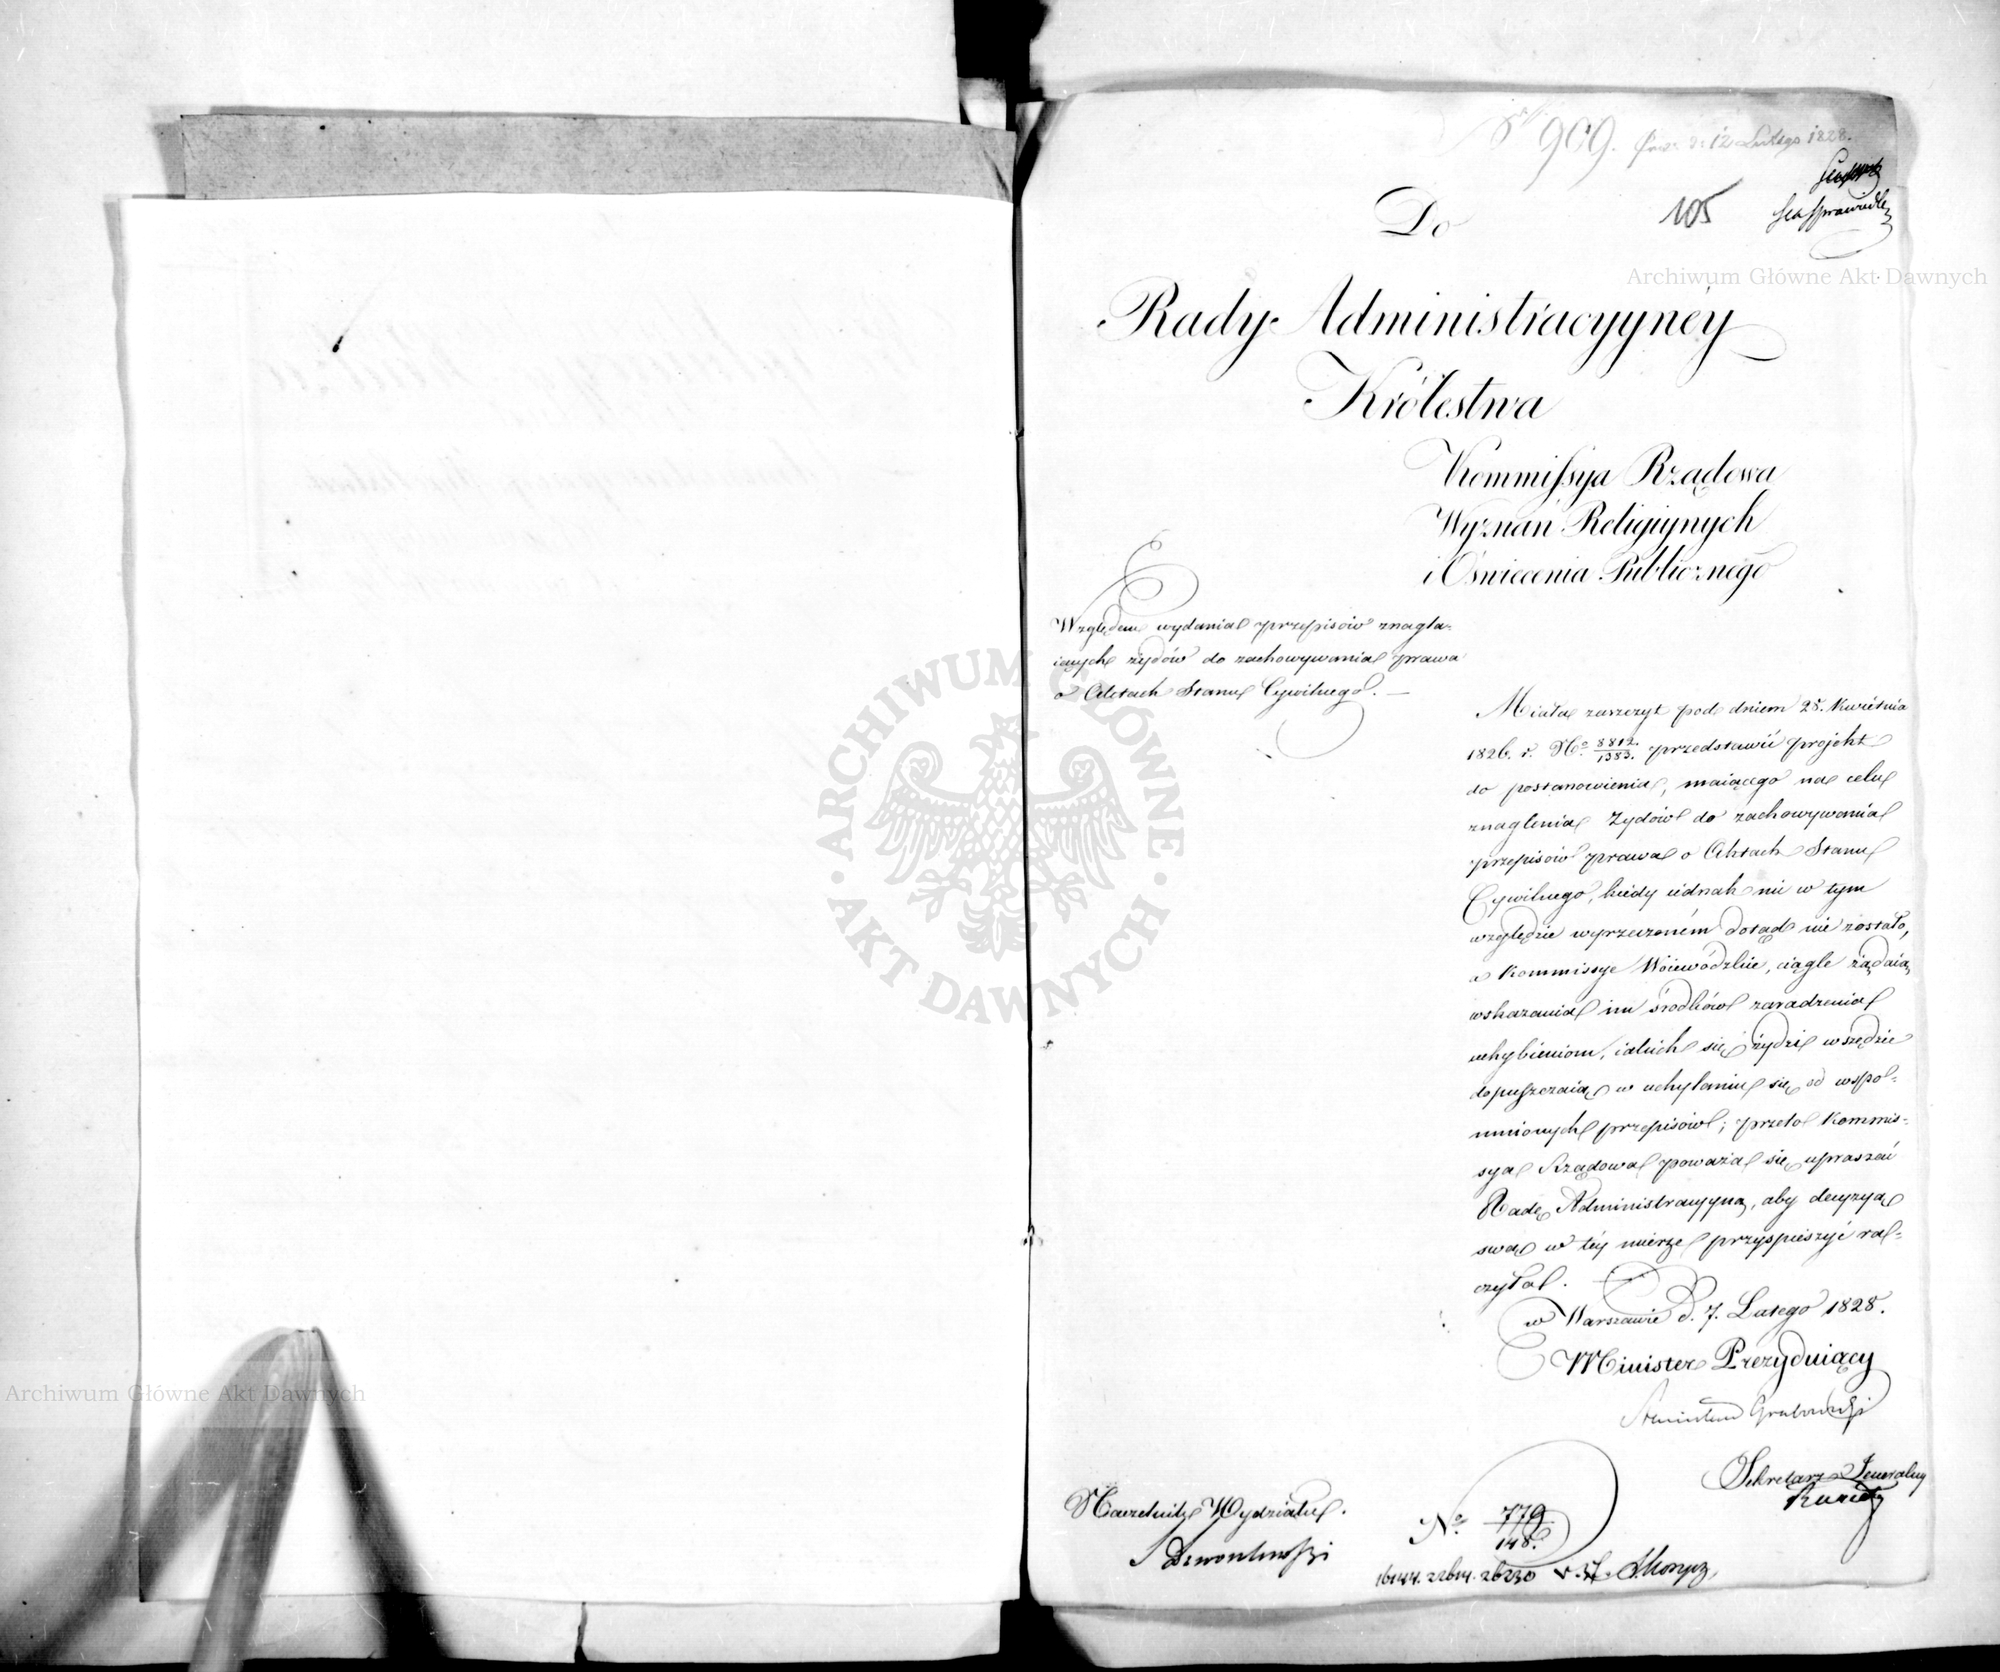 Nr 909. Prez. d. 12 Lutego 1828.
105
Do
Rady Administracyyney
Królestwa
Kommissya Rządowa
Wyznań Religiynych
i Oświecenia Publicznego
Względem wydania przepisów znagla-
iących żydów do zachowywania prawa
o Aktach Stanu Cywilnego. —
Miała zaszczyt pod dniem 28. Kwietnia
1826. r. No. 8812./1383. przedstawić projekt
do postanowienia, maiącego na celu
znaglenia Żydów do zachowywania
przepisów prawa o Aktach Stanu
Cywilnego, kiedy iednak nic w tym
względzie wyrzeczoném dotąd nie zostało,
a Kommissye Woiewódzkie, ciągle żądaią
wskazania im środków zaradzenia
uchybieniom, iakich się żydzi wszędzie
dopuszczaią w uchylaniu się od wspo-
mnionych przepisów; przeto Kommis-
sya Rządowa poważa się upraszać
Radę Administracyyną, aby decyzyą
swą w téy mierze przyspieszyć ra-
czyła. —
w Warszawie d. 7. Lutego 1828.
Minister Prezyduiący
Stanisław Grabowski
Sekretarz Jeneralny
Naczelnik Wydziału.
No. 779/148.
16144. 22614. 26230
Archiwum Główne Akt Dawnych
Archiwum Główne Akt Dawnych
ARCHIWUM GŁÓWNE
AKT DAWNYCH